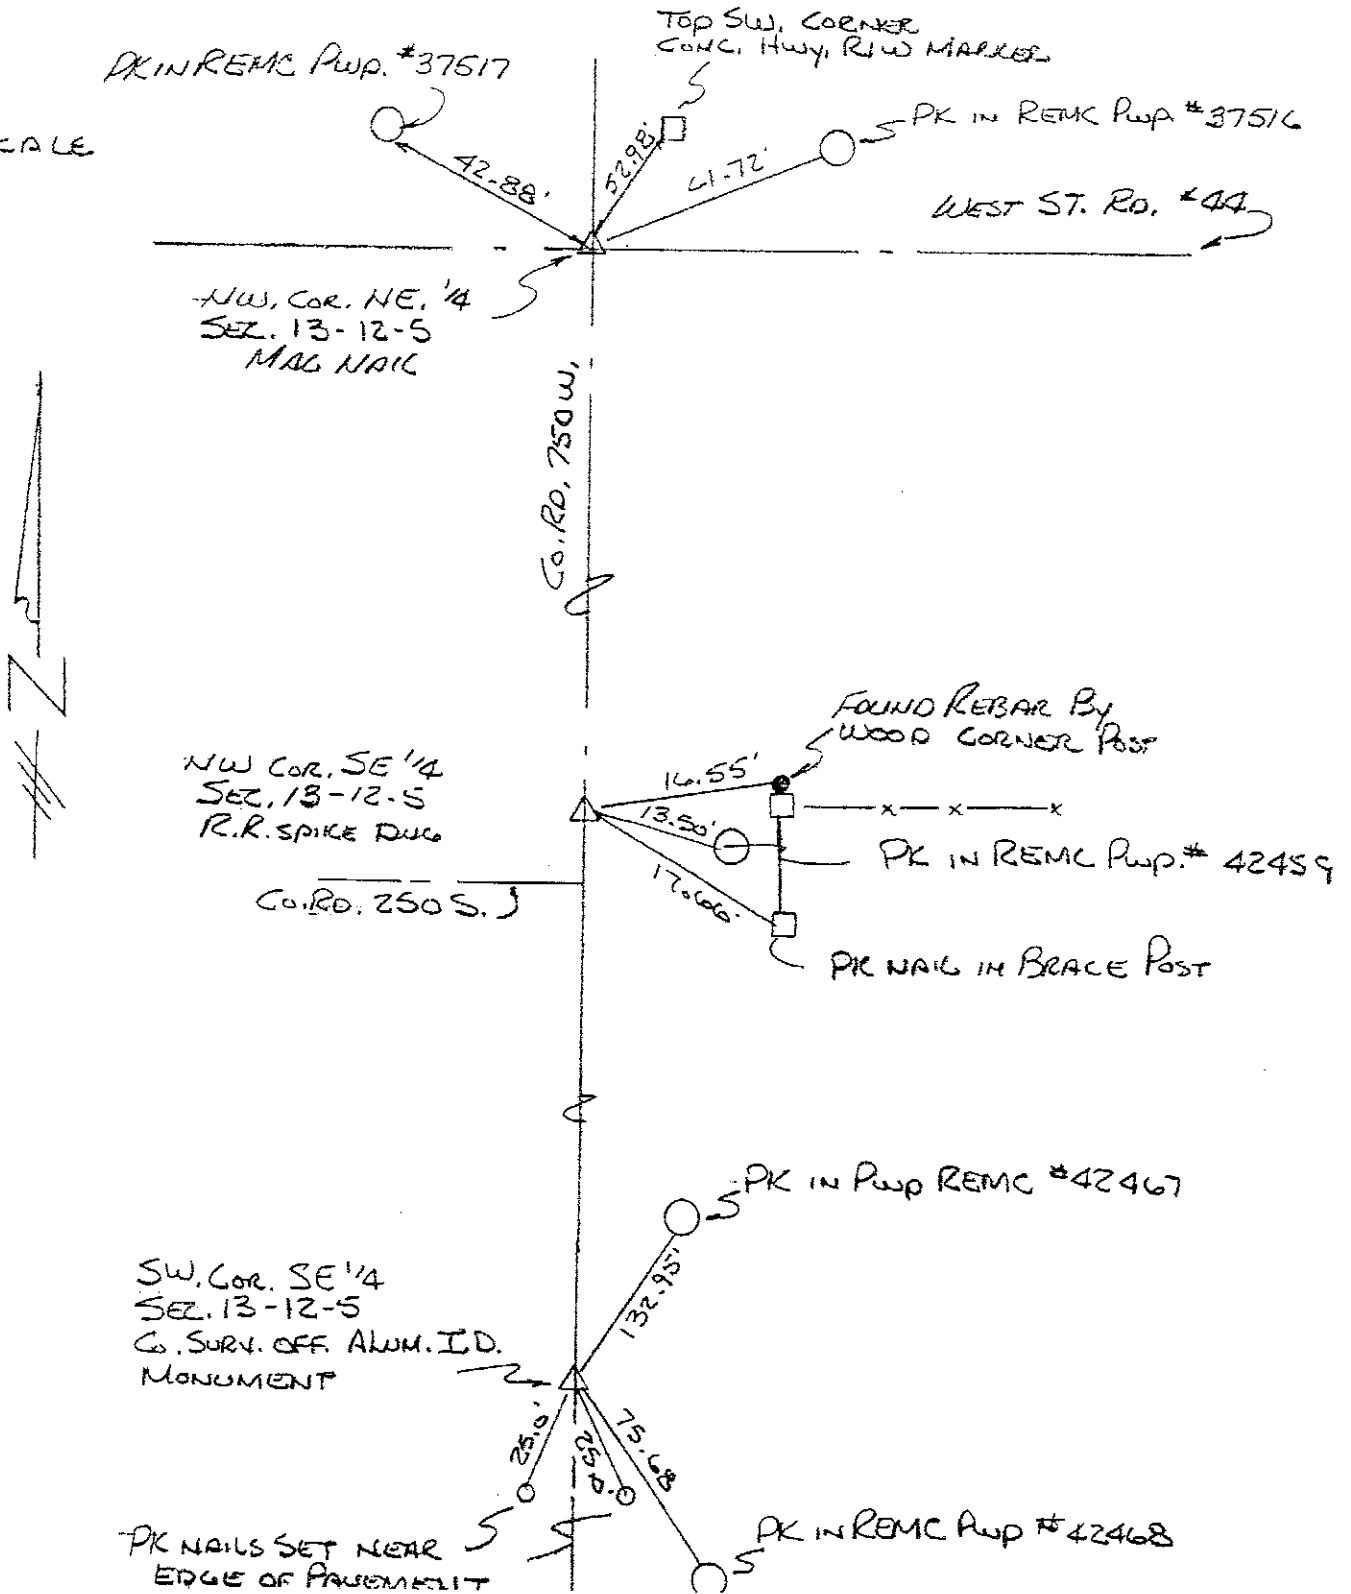 TOP SW. CORNER
CONC. HWY, R/W MARKER
PK IN REMC PWP. #37517
PK IN REMC PWP. #37516
42.88'
52.98'
61.72'
WEST ST. RD. #44
NW. COR. NE. 1/4
SEC. 13-12-5
MAG NAIL
CO. RD, 750 W,
N
FOUND REBAR BY
WOOD CORNER POST
NW COR. SE 1/4
SEC. 13-12-5
R.R. SPIKE DUG
16.55'
13.50'
x x x
PK IN REMC PWP. # 42459
17.66'
CO. RD. 250 S.
PK NAIL IN BRACE POST
PK IN PWP REMC #42467
132.95'
SW. COR. SE 1/4
SEC. 13-12-5
CO. SURV. OFF. ALUM. I.D.
MONUMENT
25.0'
25.0'
75.68
PK IN REMC PWP #42468
PK NAILS SET NEAR
EDGE OF PAVEMENT